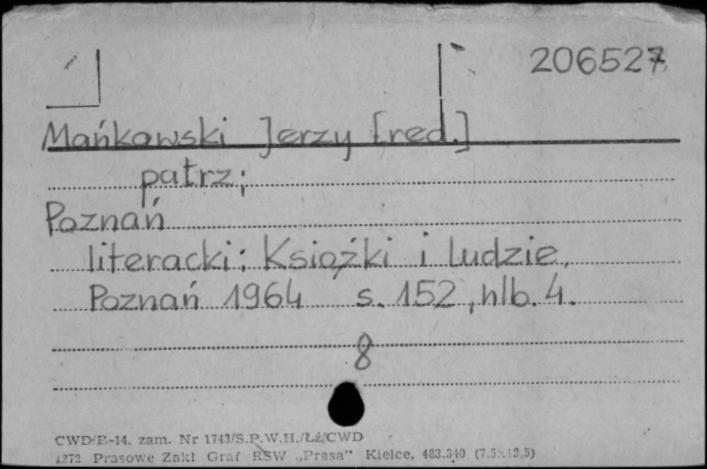 206527
Mańkowski Jerzy [red.]
patrz:
Poznań
literacki: Książki i ludzie,
Poznań 1964 s. 152, nlb. 4.
8
CWD/E-14. zam. Nr 1743/S.P.W.H./Łż/CWD
1272 Prasowe Zakł Graf RSW „Prasa" Kielce, 483.340 (7.5x12,5)